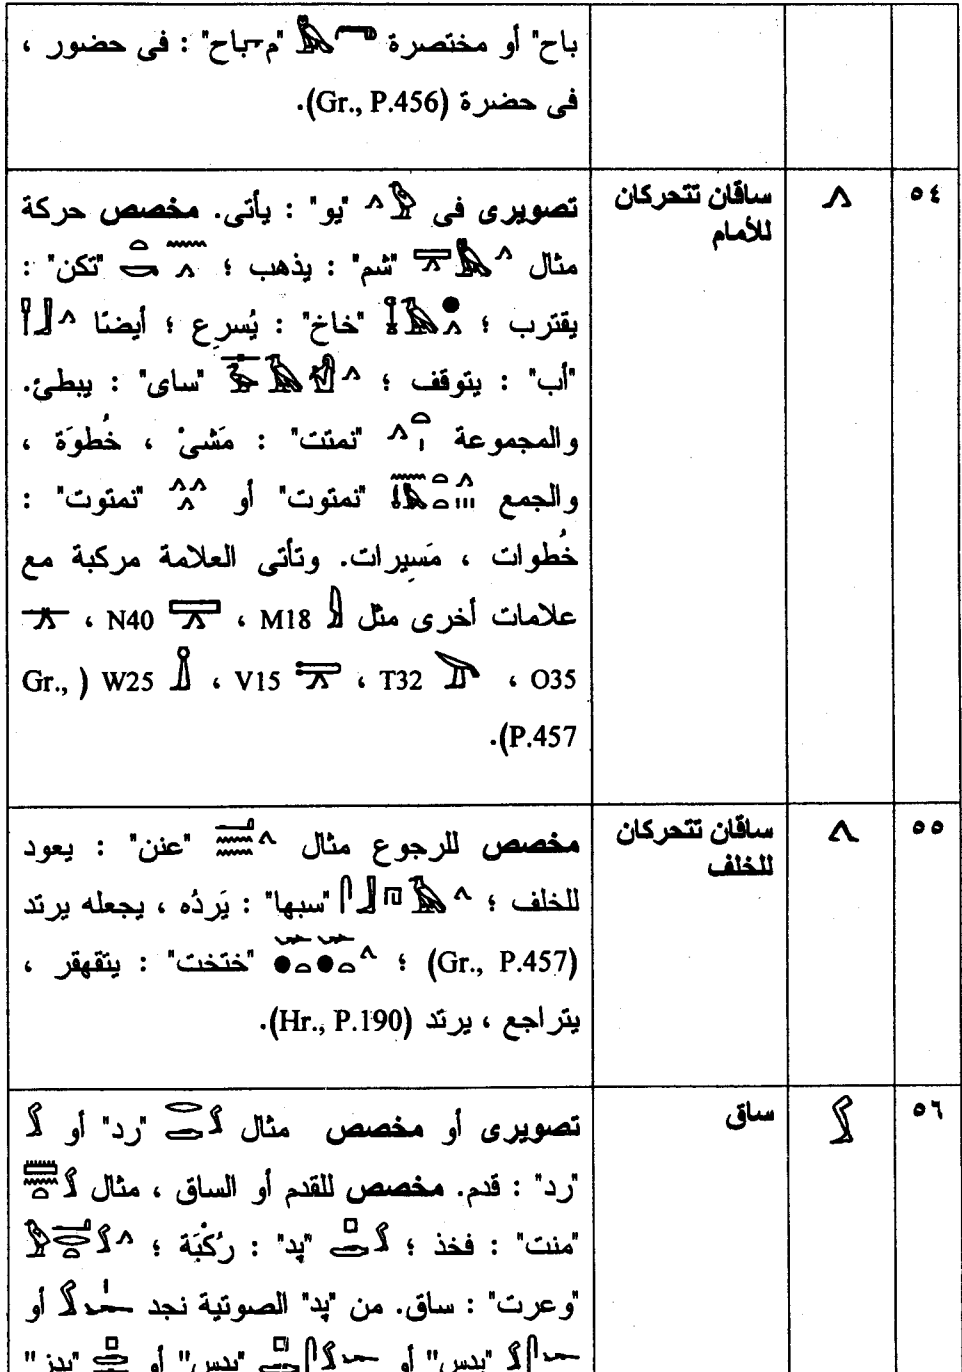 باح" أو مختصرة 𓂺𓅓 "م-باح" : فى حضور ،
فى حضرة (Gr., P.456).
٥٤
𓂻
ساقان تتحركان
للأمام
تصويرى فى 𓅱𓂻 "يو" : يأتى. مخصص حركة
مثال 𓈝𓅓𓂻 "شم" : يذهب ؛ "تكن" :
يقترب ؛ "خاخ" : يُسرع ؛ أيضًا
"أب" : يتوقف ؛ "ساى" : يبطئ.
والمجموعة "نمتت" : مَشىْ ، خُطوَة ،
والجمع "نمتوت" أو 𓂻𓂻𓂻 "نمتوت" :
خُطوات ، مَسِيرات. وتأتى العلامة مركبة مع
علامات أخرى مثل 𓇍 M18 ، 𓈝 N40 ، 𓊛
O35 ، 𓌫 T32 ، 𓎁 V15 ، 𓏎 W25 (Gr.,
P.457).
٥٥
𓂽
ساقان تتحركان
للخلف
مخصص للرجوع مثال "عنن" : يعود
للخلف ؛ "سبها" : يَردُه ، يجعله يرتد
(Gr., P.457) ؛ "ختخت" : يتقهقر ،
يتراجع ، يرتد (Hr., P.190).
٥٦
𓂾
ساق
تصويرى أو مخصص مثال 𓂋𓂧𓂾 "رد" أو 𓂾
"رد" : قدم. مخصص للقدم أو الساق ، مثال 𓏠𓈖𓏏𓂾
"منت" : فخذ ؛ 𓊪𓂧𓂾 "پد" : رُكْبَة ؛
"وعرت" : ساق. من "پد" الصوتية نجد أو
"پدس" أو "پدس" أو "پدز"